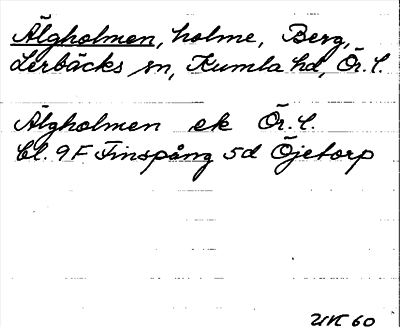 Älgholmen, holme, Berg,
Lerbäcks sn, Kumla hd, Ör. l.
Älgholmen ek Ör. l.
bl. 9F Finspång 5d Öjetorp
UK 60